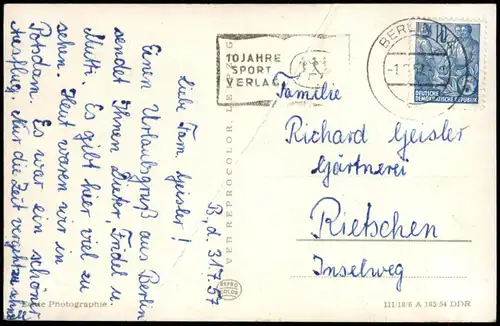 B, d. 31.7.57
Liebe Fam. Geisler!
Einen Urlaubsgruß aus Berlin
sendet Ihnen Dieter, Fridel u.
Mutti. Es gibt hier viel zu
sehen. Heut waren wir in
Potsdam. Es war ein schöner
Ausflug. Nur die Zeit vergeht zu schnell
Echte Photographie
VEB REPROCOLOR LEIPZIG
REPRO
COLOR
10 JAHRE
SPORT
VERLAG
BERLIN
DEUTSCHE
DEMOKRATISCHE REPUBLIK
Familie
Richard Geisler
Gärtnerei
Rietschen
Inselweg
III/18/6 A 165/54 DDR